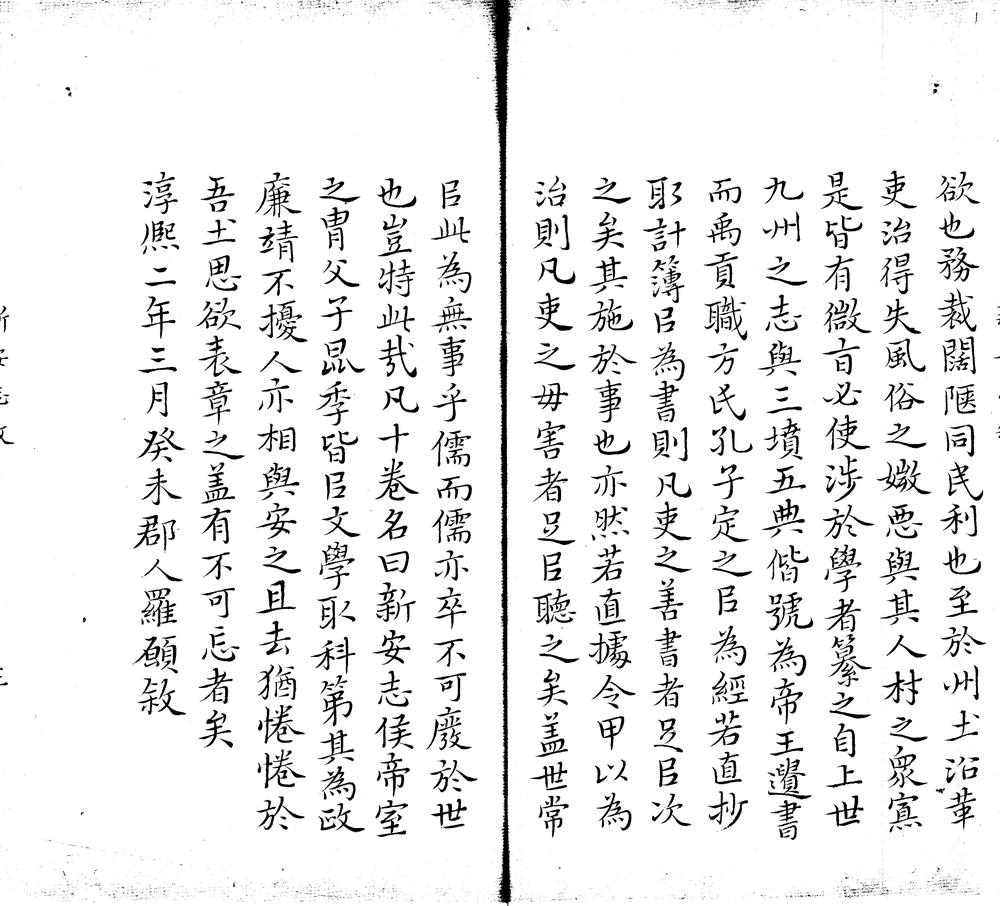 欲也務裁闊陿同民利也至於州土沿革
吏治得失風俗之媺惡與其人材之衆寡
是皆有微旨必使涉於學者纂之自上世
九州之志與三墳五典偕號為帝王遺書
而禹貢職方氏孔子定之㠯為經若直抄
取計簿㠯為書則凡吏之善書者足㠯次
之矣其施於事也亦然若直據令甲以為
治則凡吏之毋害者足㠯聽之矣盖世常
㠯此為無事乎儒而儒亦卒不可廢於世
也豈特此哉凡十卷名曰新安志侯帝室
之胄父子昆季皆㠯文學取科第其為政
廉靖不擾人亦相與安之且去猶惓惓於
吾土思欲表章之盖有不可忘者矣
淳熙二年三月癸未郡人羅願敘